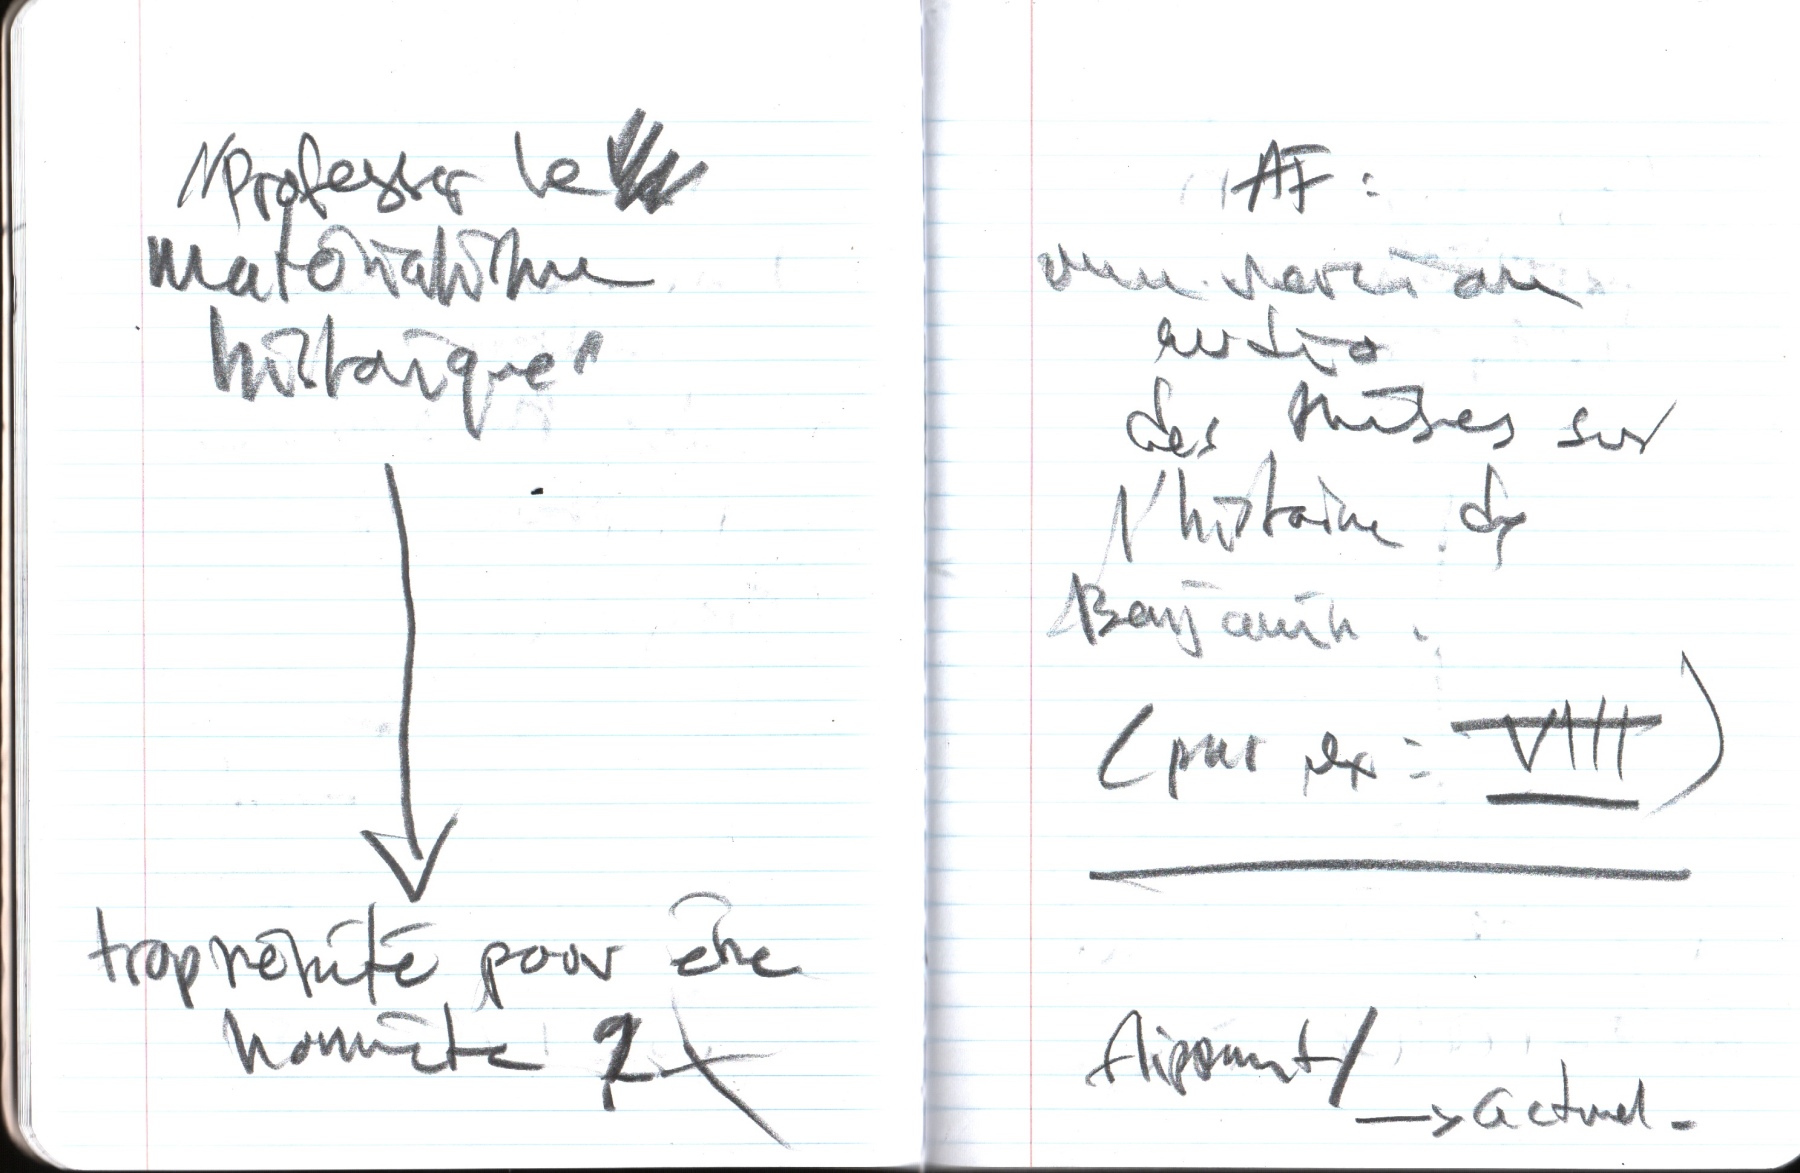 "Professer le
matérialisme
historique"
trop répété pour être
honnête ?
AF :
une version
audio
des thèses sur
l'histoire de
Benjamin.
(par ex : VIII)
flippant /
→ actuel.